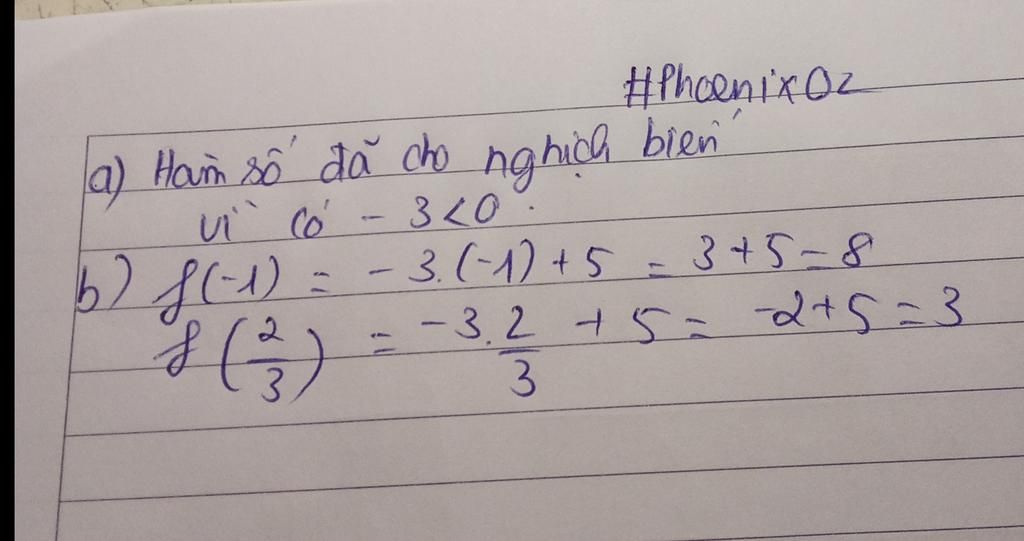 #PhoenixOz
a) Hàm số đã cho nghịch biến
vì có - 3 < 0.
b) f(-1) = - 3.(-1) + 5 = 3 + 5 = 8
f(2/3) = -3.2/3 + 5 = -2 + 5 = 3